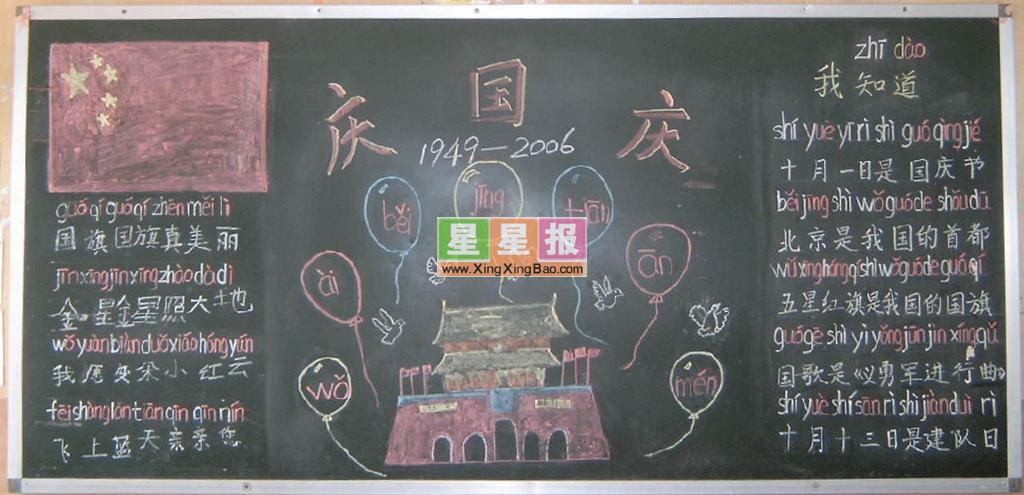 guó qí guó qí zhēn měi lì
国旗国旗真美丽
jīn xīng jīn xīng zhào dà dì
金星金星照大地
wǒ yuàn biàn duǒ xiǎo hóng yún
我愿变朵小红云
fēi shàng lán tiān qīn qīn nín
飞上蓝天亲亲您
庆国庆
1949—2006
wǒ
ài
běi
jīng
tiān
ān
mén
星星报
www.XingXingBao.com
zhī dào
我知道
shí yuè yī rì shì guó qìng jié
十月一日是国庆节
běi jīng shì wǒ guó de shǒu dū
北京是我国的首都
wǔ xīng hóng qí shì wǒ guó de guó qí
五星红旗是我国的国旗
guó gē shì yì yǒng jūn jìn xíng qǔ
国歌是《义勇军进行曲》
shí yuè shí sān rì shì jiàn duì rì
十月十三日是建队日